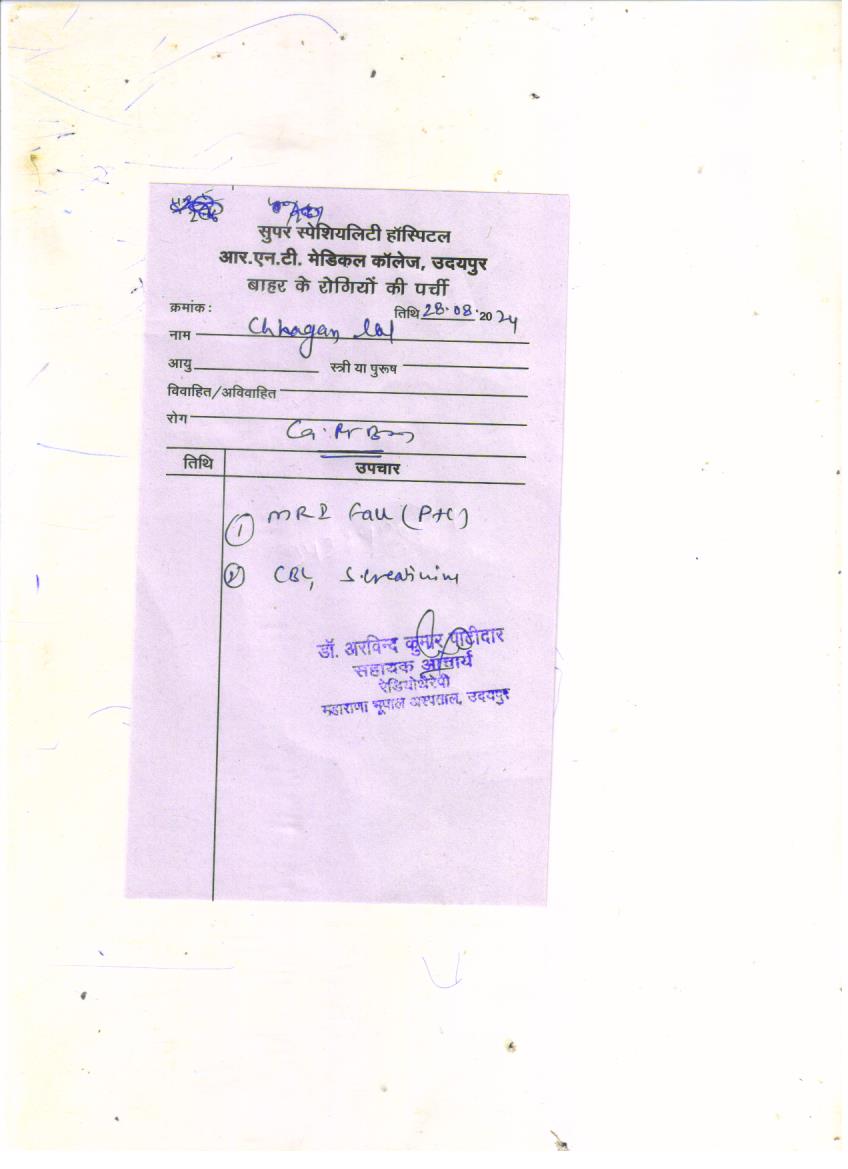 सुपर स्पेशियलिटी हॉस्पिटल
आर.एन.टी. मेडिकल कॉलेज, उदयपुर
बाहर के रोगियों की पर्ची
क्रमांक :
तिथि 28.08.2024
नाम Chhagan lal
आयु स्त्री या पुरूष
विवाहित/अविवाहित
रोग Ca.
तिथि उपचार
① MRI Face (P+C)
② CBC, S.creatinine
डॉ. अरविन्द कुमार पाटीदार
सहायक आचार्य
रेडियोथैरेपी
महाराणा भूपाल अस्पताल, उदयपुर